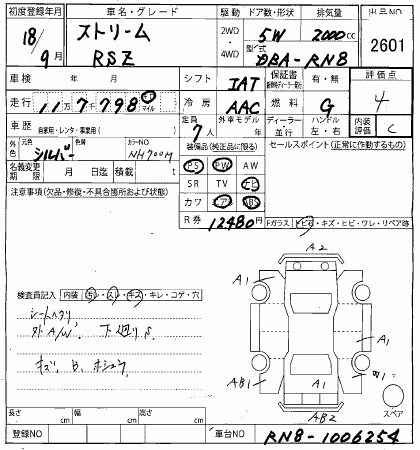 初度登録年月 車名・グレード 駆動 ドア数・形状 排気量 出品NO
18/9月 ストリーム RSZ 2WD・4WD 5W 2000cc 2601
型式 DBA-RN8
車検 年 月 シフト IAT 保証書 有・無 評価点 4
走行 11万7798 キロ マイル 冷房 AAC 燃料 G
車歴 自家用・レンタ・事業用( ) 定員 7人 外車モデル年 ディーラー・並行 ハンドル 左・右 内装評価 C
外色 元色 シルバー カラーNO NH700M 装備品(純正品に限る) セールスポイント(正常に作動するもの)
名義変更期限 月 日迄 積載 t PS PW AW
SR TV ナビ
注意事項(欠品・修復・不具合箇所および状態) カワ エアB ABS
R券 12480円 Fガラス トビ石・キズ・ヒビ・ワレ・リペア跡
A2
A1 A1
検査員記入 内装 モレ・スレ・キズ・キレ・コゲ・穴
シートヘタリ
外A/W 下廻りS
A1 A1
キズ、B、ホシュウ
AB1 A1 W1
AB2 スペア
長さ cm 幅 cm 高さ cm
登録NO 車台NO RN8-1006254